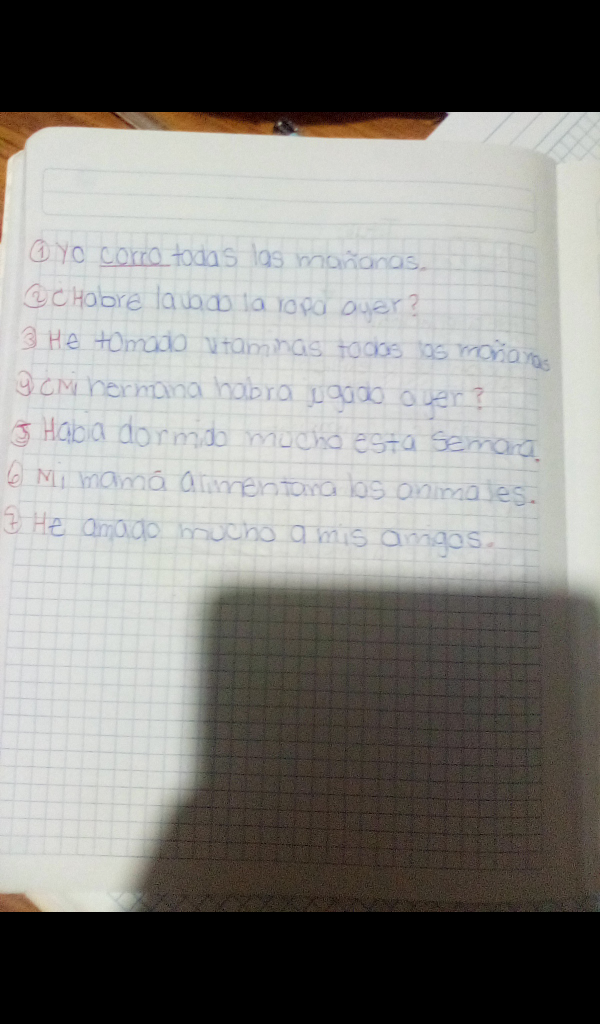 ① Yo corro todas las mañanas.
② ¿Habre lavado la ropa ayer?
③ He tomado vtaminas todas las mañanas
④ ¿Mi hermana habra jugado ayer?
⑤ Habia dormido mucho esta semana.
⑥ Mi mamá alimentara los animales.
⑦ He amado mucho a mis amigos.